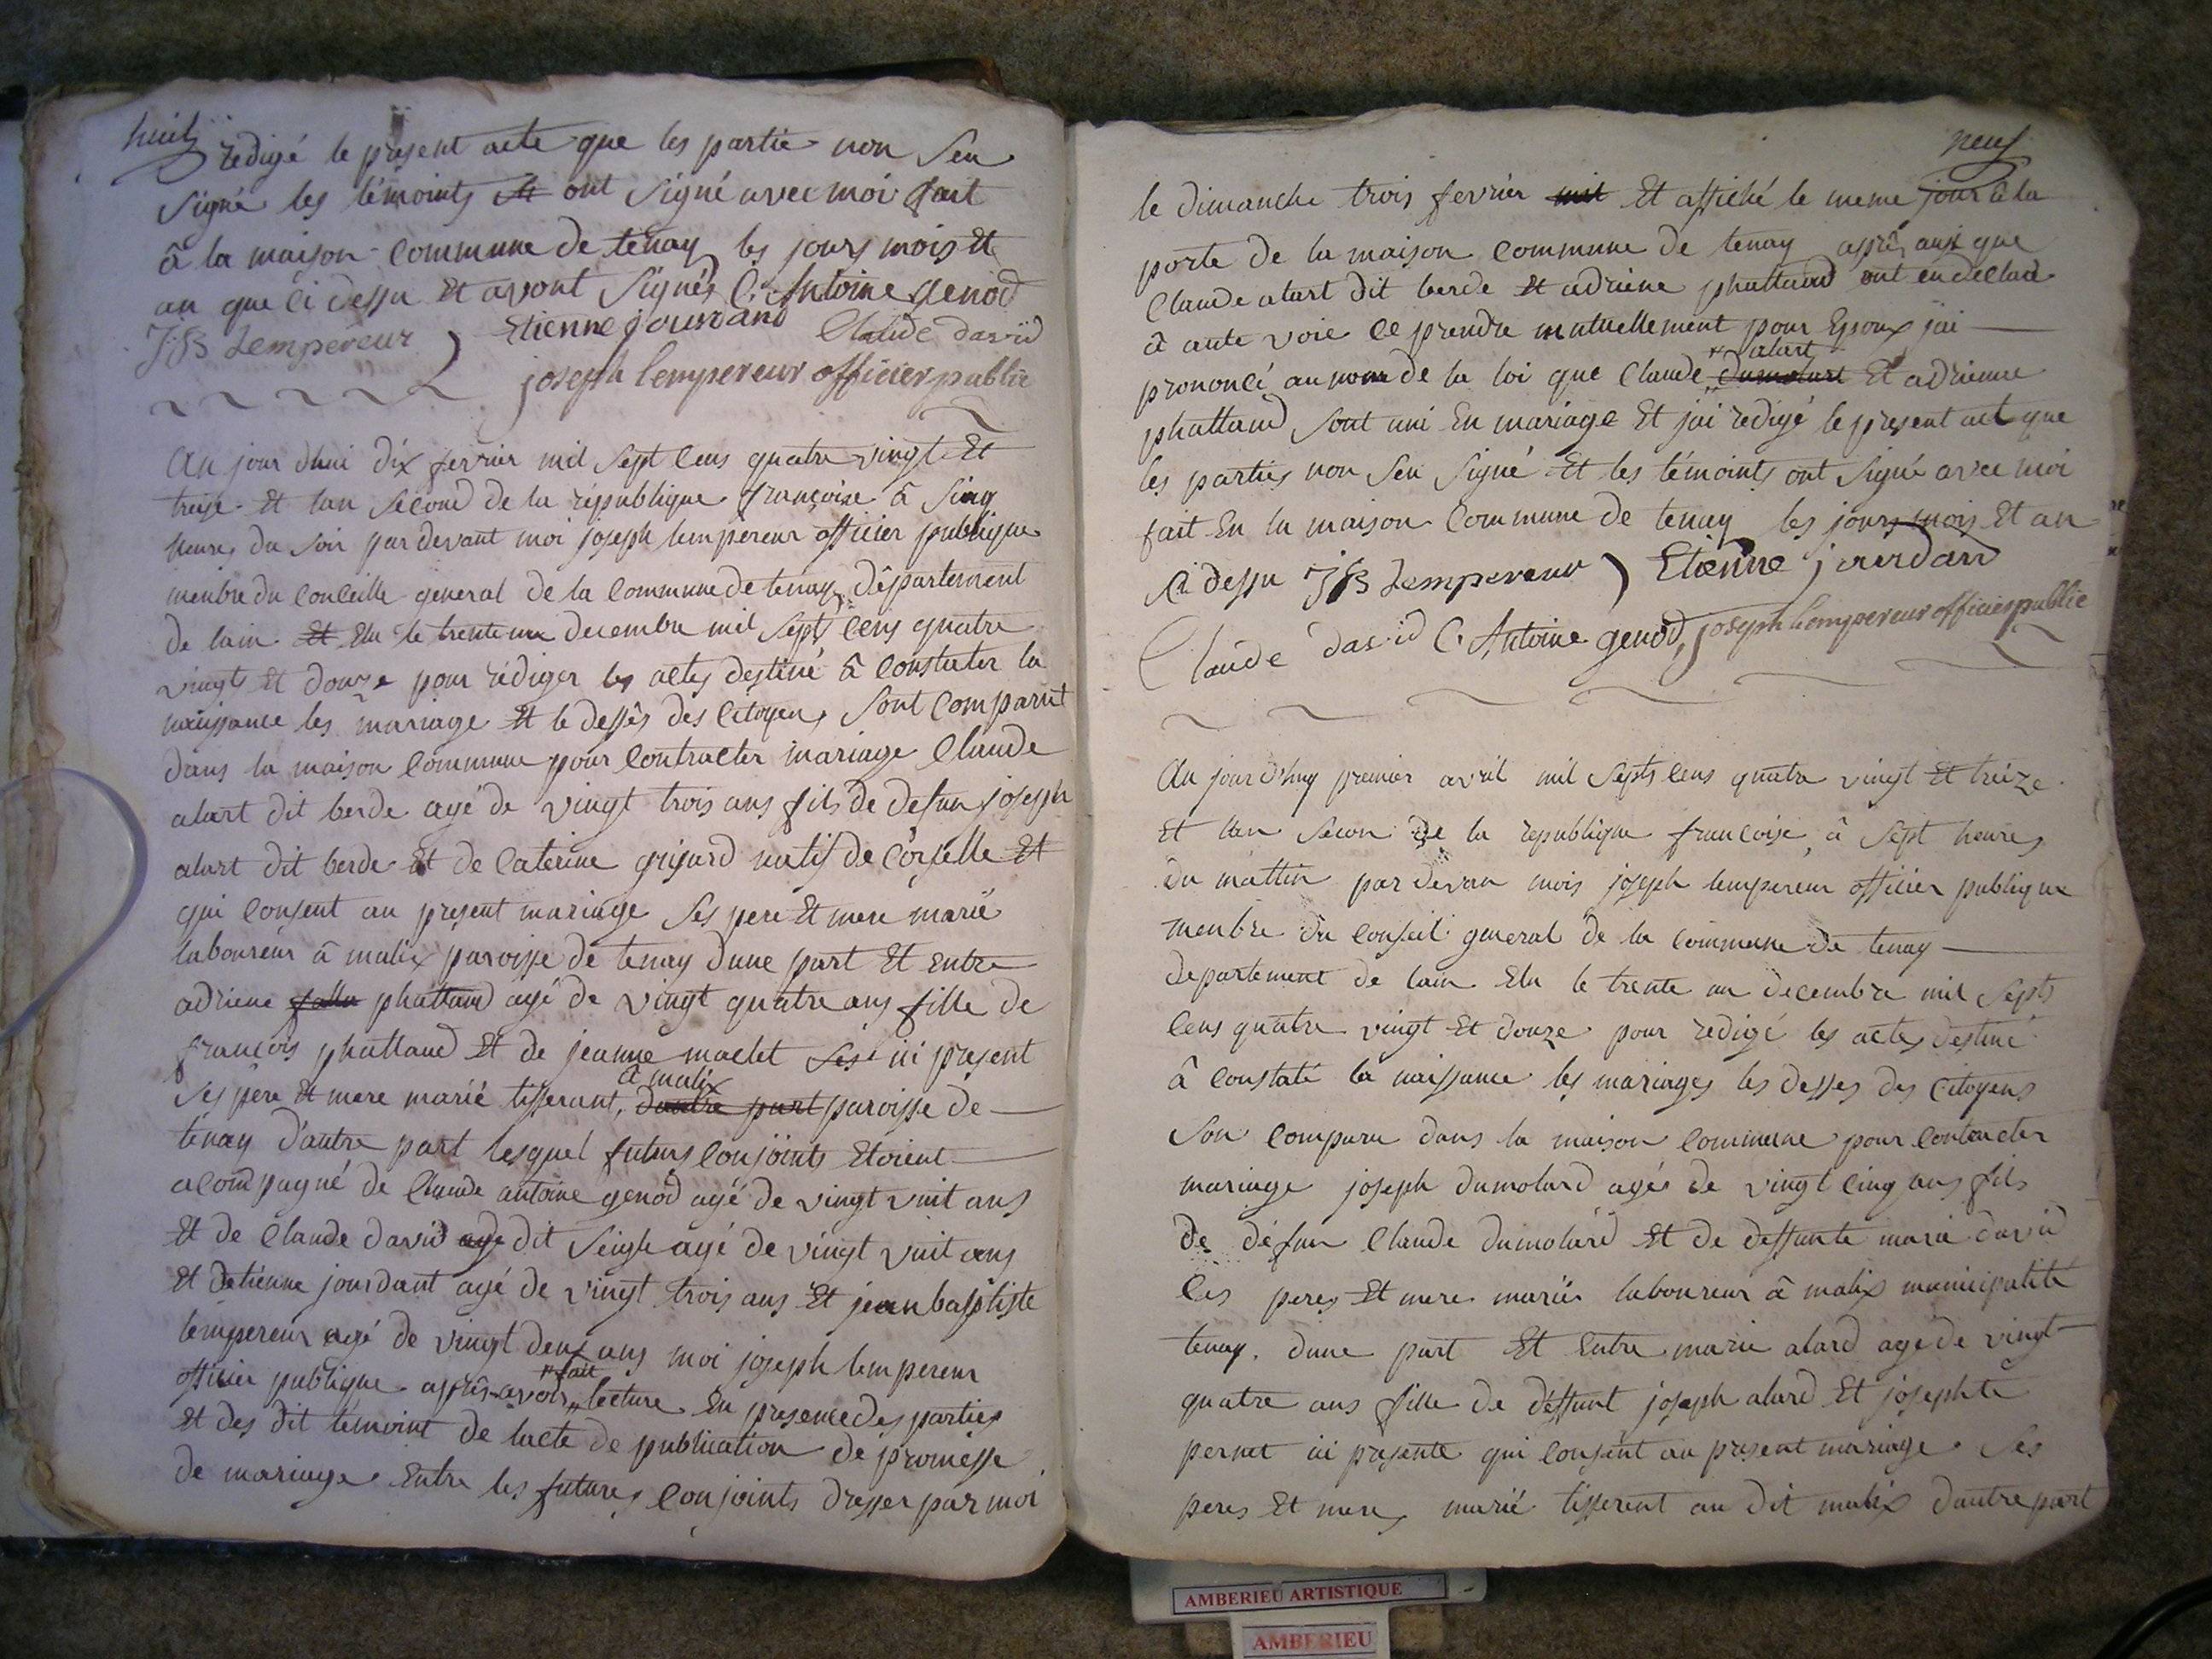 huit
redigé le present acte que les partie non Seu
Signé les témoints et ont Signé avec moi fait
â la maison commune de tenay les jours mois et
an que ci dessu et avont Signés C. Antoine genod
JBs Lempereur Etienne jourdand Claude david
joseph lempereur officier public
Au jour dhui dix fevrier mil Sept Cens quatre vingt Et
treise Et lan Second de la république françoise â Sinq
heures du Soir par devant moi joseph lempereur officier publique
menbre du Conceille general de la Commune de tenay département
de lain Et Elu le trente un decembre mil Septs Cens quatre
vingts Et douze pour rédiger les actes destiné â Constater la
naissance les mariage Et le dessès des Citoyens Sont Comparut
dans la maison Commune pour Contracter mariage Claude
alart dit berde agé de vingt trois ans fils de defun joseph
alart dit berde Et de Caterine grijard natif de Corselle Et
qui Consent au present mariage Ses pere Et mere marié
laboureur â malix paroisse de tenay dune part Et Entre
adriene phattaud agé de vingt quatre ans fille de
françois phattaud Et de jeanne maclet ici present
â malix
Ses père Et mere marié tisserant, dautre part paroisse de
tenay d'autre part lesquel futurs Conjoints Etoient
acompagné de Claude antoine genod agé de vingt vuit ans
Et de Claude david age dit Seigle agé de vingt vuit ans
Et detienne jourdant agé de vingt trois ans Et jean baptiste
lempereur agé de vingt deux ans moi joseph lempereur
fait
officier publique après avoir lecture En presence des parties
Et des dit témoint de lacte de publication de promesse
de mariage Entre les futures Conjoints dresser par moi
neuf
le dimanche trois fevrier mil Et affiché le meme jour a la
porte de la maison Commune de tenay après ausi que
Claude alart dit berde Et adriene phattaud ont eu declaré
â aute voie Ce prendre mutuellement pour Epoux jai
alart
prononcé au nom de la loi que Claude dumolart Et adrienne
phattaud Sont uni En mariage Et jai redigé le present act que
les parties non Seu Signé Et les témoints ont Signé avec moi
fait En la maison Commune de tenay les jours mois Et an
Ci dessu JBs Lempereur Etienne jourdand
Claude david C. Antoine genod, joseph lempereur officier public
Au jour d'huy premier avril mil Septs Cens quatre vingt Et treize
Et lan Secon de la republique francoise, â Sept heures
du mattin par devan mois joseph lempereur officier publique
menbre du Conseil general de la Commune de tenay
departement de lain Elu le trente un decembre mil Septs
Cens quatre vingt Et douze pour redigé les actes destiné
â Constaté la naissance les mariages les desses des Citoyens
Son Comparu dans la maison Commune pour Contracter
mariage joseph dumolard agés de vingt Cinq ans fils
de défun Claude dumolard Et de deffunte marie david
Ces peres Et mere mariés laboureur â malix municipalité
tenay. dune part Et Entre marie alard agé de vingt
quatre ans fille de déffunt joseph alard Et josephte
pernet ici presente qui Consent au present mariage Ses
peres Et meres marié tisserent au dit malix dautre part
AMBERIEU ARTISTIQUE
AMBERIEU